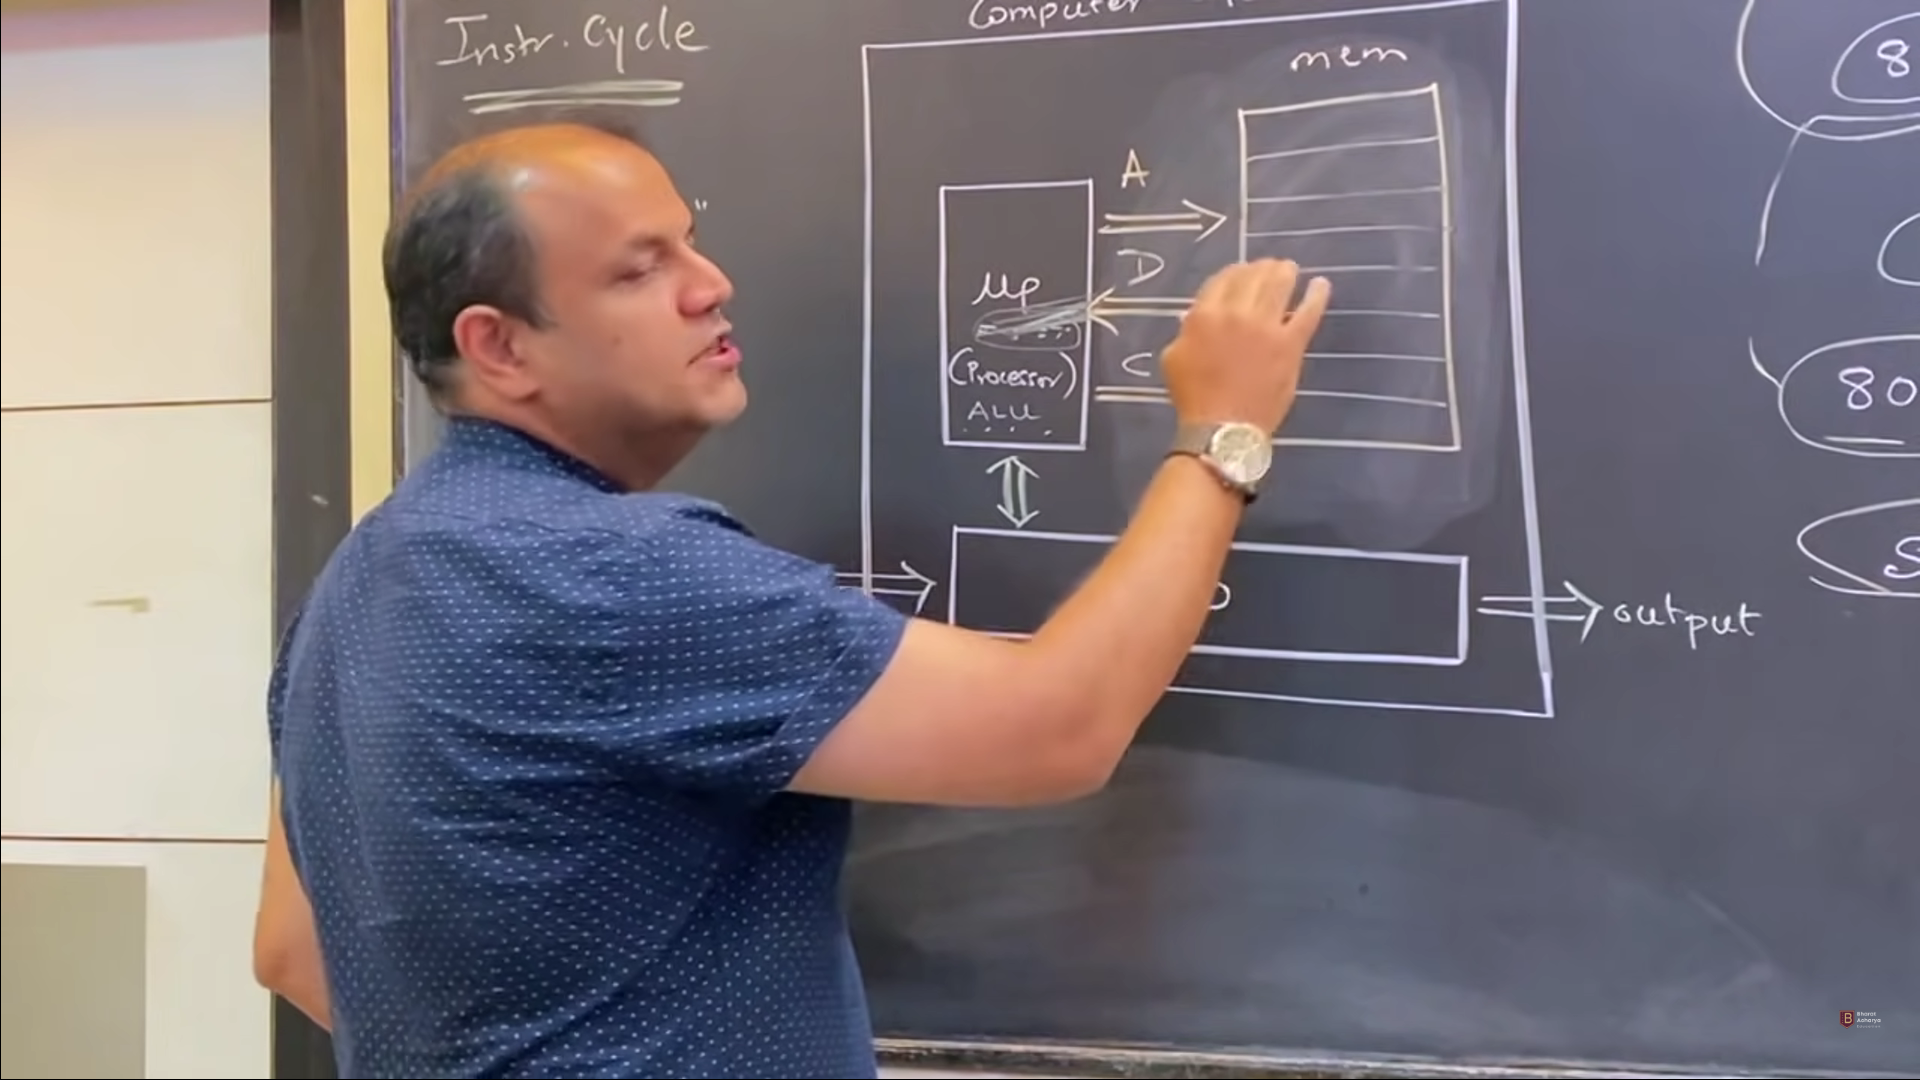 Instr. Cycle
Computer
mem
"
A
D
μp
(Processor)
ALU
C
output
8
80
S
Bharat
Acharya